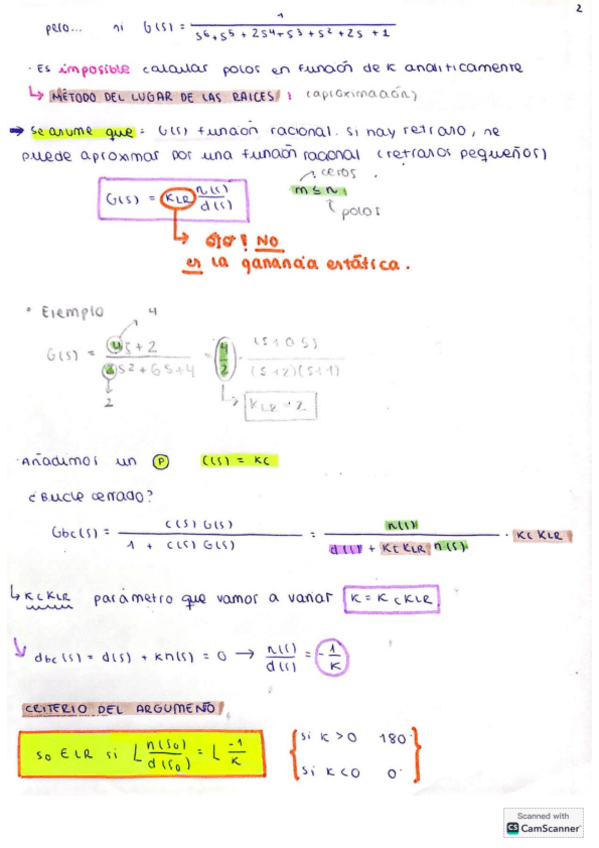 2
pero... si G(s) = 1 / (s⁶ + s⁵ + 2s⁴ + s³ + s² + 2s + 1)
· Es imposible calcular polos en función de K analíticamente
↳ MÉTODO DEL LUGAR DE LAS RAICES : (aproximación)
→ Se asume que: G(s) función racional. Si hay retraso, se
puede aproximar por una función racional (retrasos pequeños)
ceros
G(s) = KLR n(s)/d(s) m ≤ n
polos
¡ojo! NO
es la ganancia estática.
* Ejemplo 4
G(s) = (4s + 2) / (2s² + 6s + 4) = 4/2 · (s + 0.5) / ((s+2)(s+1))
2
KLR = 2
· Añadimos un P C(s) = Kc
¿Bucle cerrado?
Gbc(s) = C(s) G(s) / (1 + C(s) G(s)) = n(s) / (d(s) + Kc KLR n(s)) · Kc KLR
↳ Kc KLR parámetro que vamos a variar K = Kc KLR
↳ dbc(s) = d(s) + Kn(s) = 0 → n(s)/d(s) = -1/K
CRITERIO DEL ARGUMENTO
so ∈ LR si ∟ n(so)/d(so) = ∟ -1/K { si K > 0 180° }
{ si K < 0 0° }
Scanned with
CS CamScanner